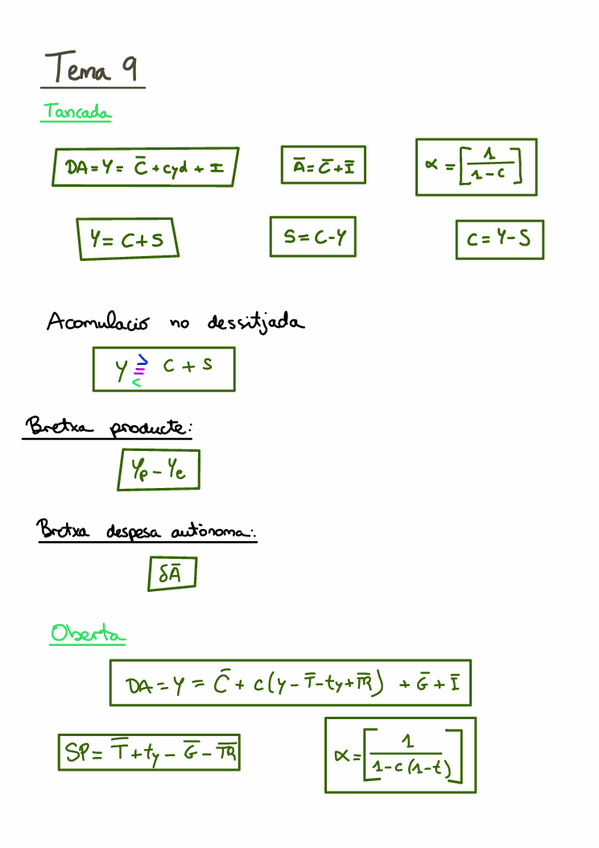 Tema 9
Tancada
DA = Y = C̄ + cyd + I
Ā = C̄ + Ī
α = [1/(1-c)]
Y = C + S
S = C - Y
C = Y - S
Acomulació no dessitjada
Y > = < C + S
Bretxa producte:
Yp - Ye
Bretxa despesa autònoma:
δĀ
Oberta
DA = Y = C̄ + c(y - T̄ - ty + T̄R̄) + Ḡ + Ī
SP = T̄ + ty - Ḡ - T̄R̄
α = [1/(1-c(1-t))]